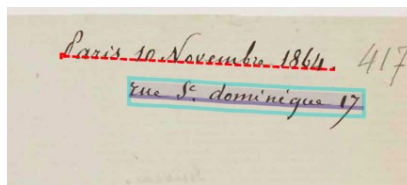 Paris 10 Novembre 1864. 417
rue St. dominique 17